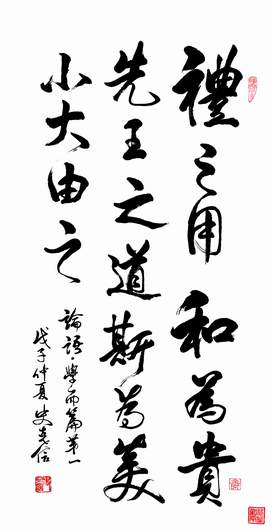 禮之用和為貴
先王之道斯為美
小大由之
論語·學而篇第一
戊子仲夏史先信